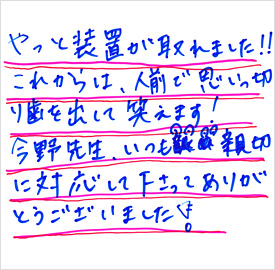 やっと装置が取れました!!
これからは、人前で思いっ切
り歯を出して笑えます!
今野先生、いつも親切
に対応して下さってありが
とうございました!